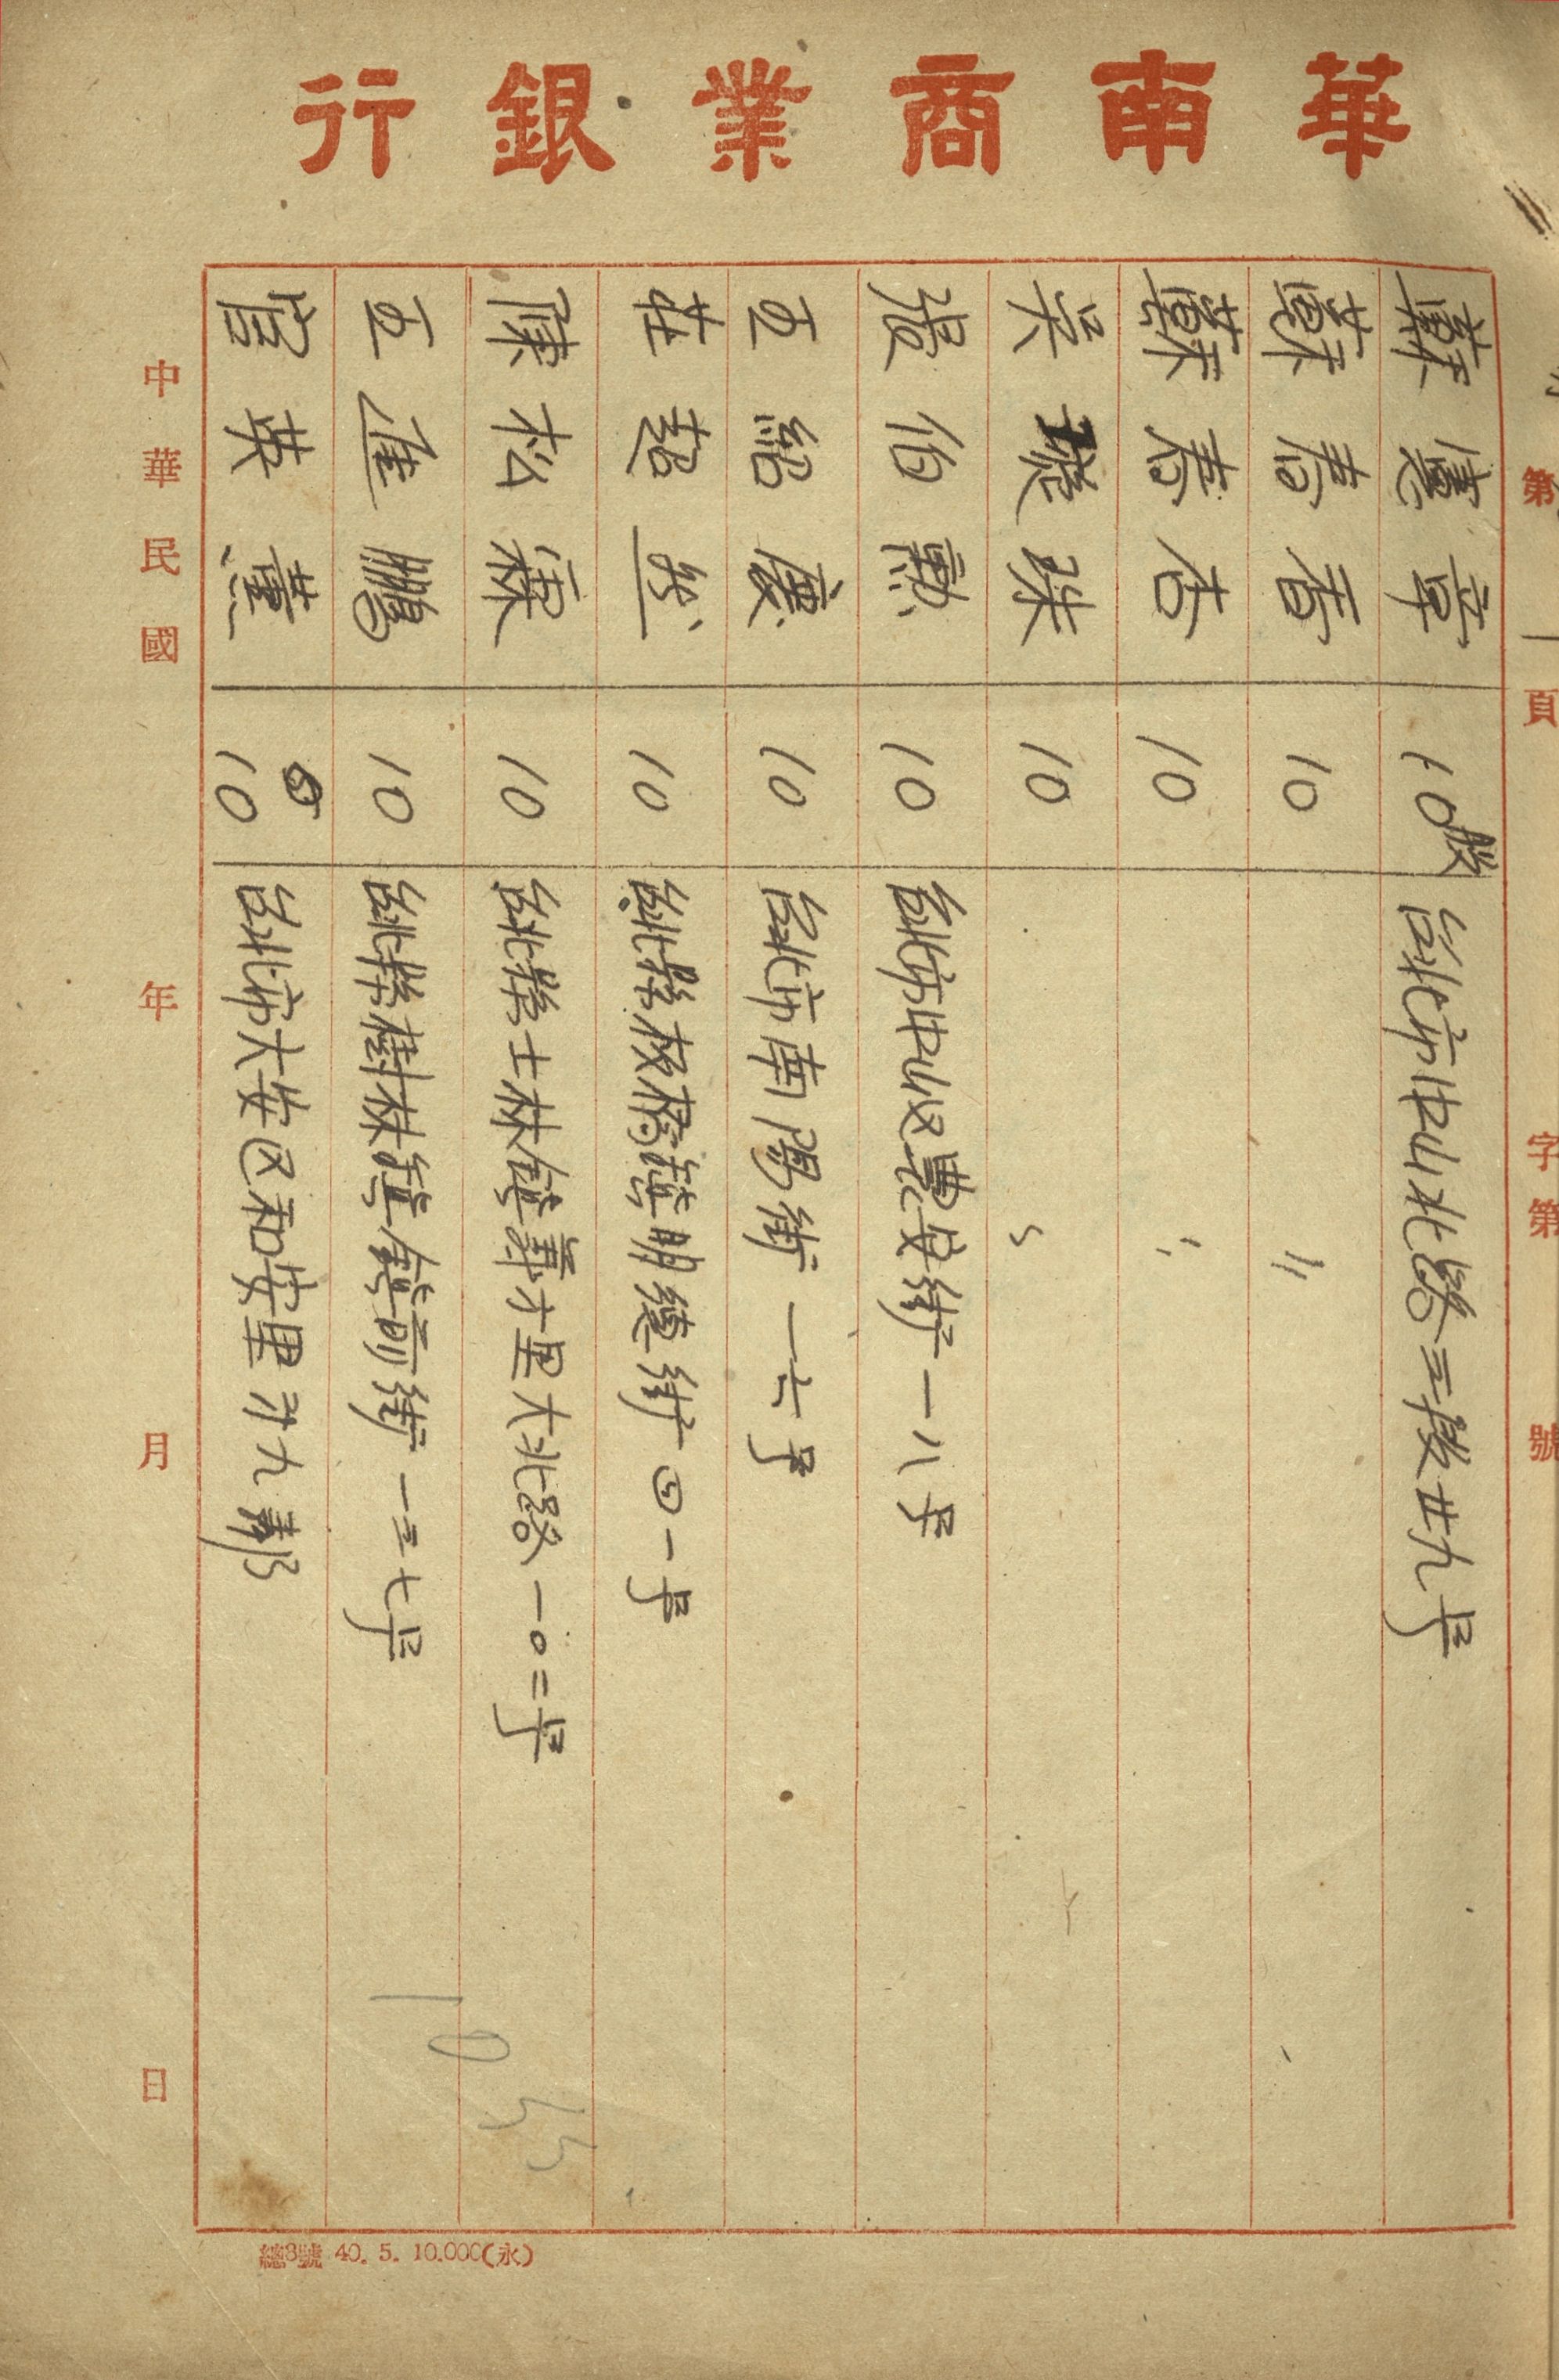 華南商業銀行
第 頁
字第 號
蘇 章 10股 台北市中山北路三段廿九号
蘇春香 10 〃
蘇春杏 10 〃
吳璇珠 10 〃
張伯勳 10 台北市中山区農安街一八号
王紹慶 10 台北市南陽街一六号
莊超丞 10 台北縣板橋鎮明德街四一号
陳松霖 10 台北縣士林鎮 里大北路一〇二号
王进鵬 10 台北縣樹林鎮鎮前街一三七号
官英薰 10 台北市大安区和安里 九鄰
中華民國 年 月 日
總8號 40. 5. 10.000(永)